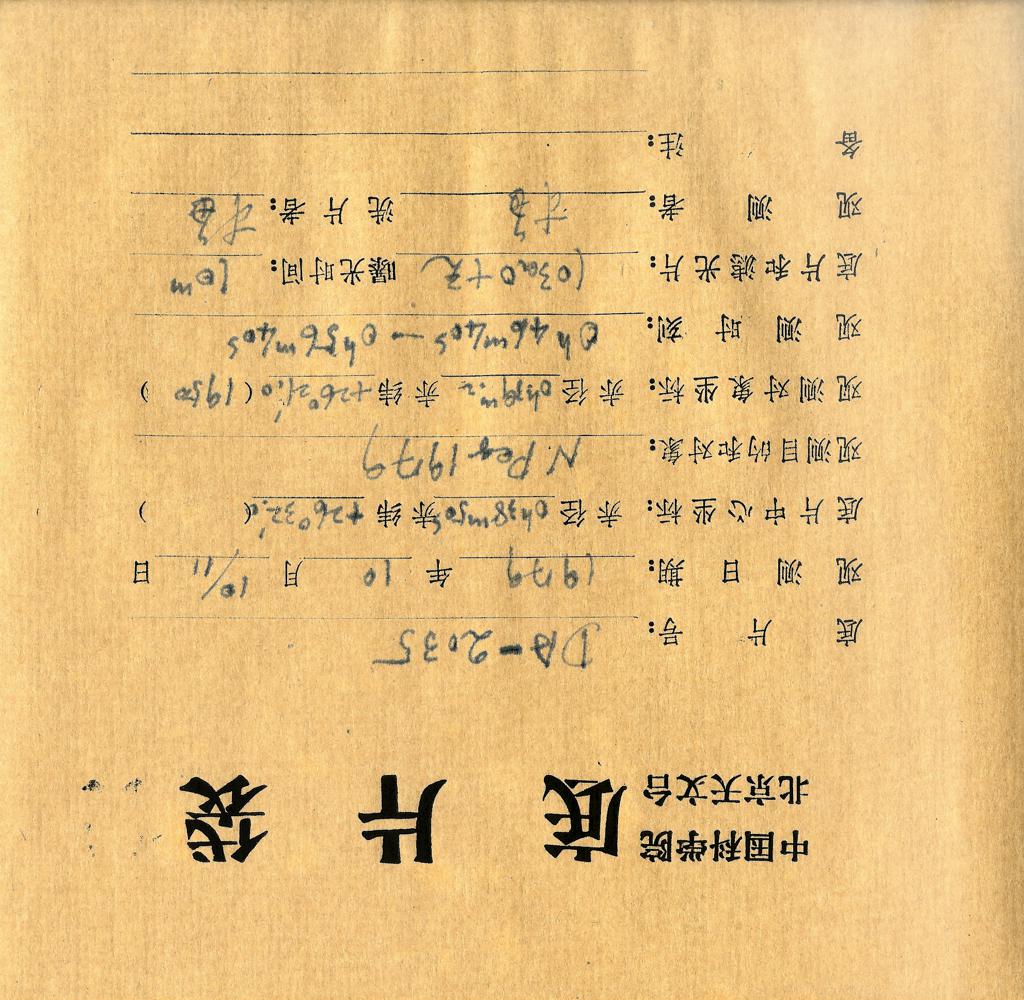 中国科学院
北京天文台
底片袋
底片号: DA-2035
观测日期: 1979年10月10/11日
底片中心坐标: 赤经0h38m50s赤纬+26°32′.0( )
观测目的和对象: N Peg 1979
观测对象坐标: 赤经 赤纬+26°21′.0(1950)
观测时刻: 0h46m40s—0h56m40s
底片和滤光片: 103aO+无 曝光时间: 10m
观测者: 洗片者:
备注: